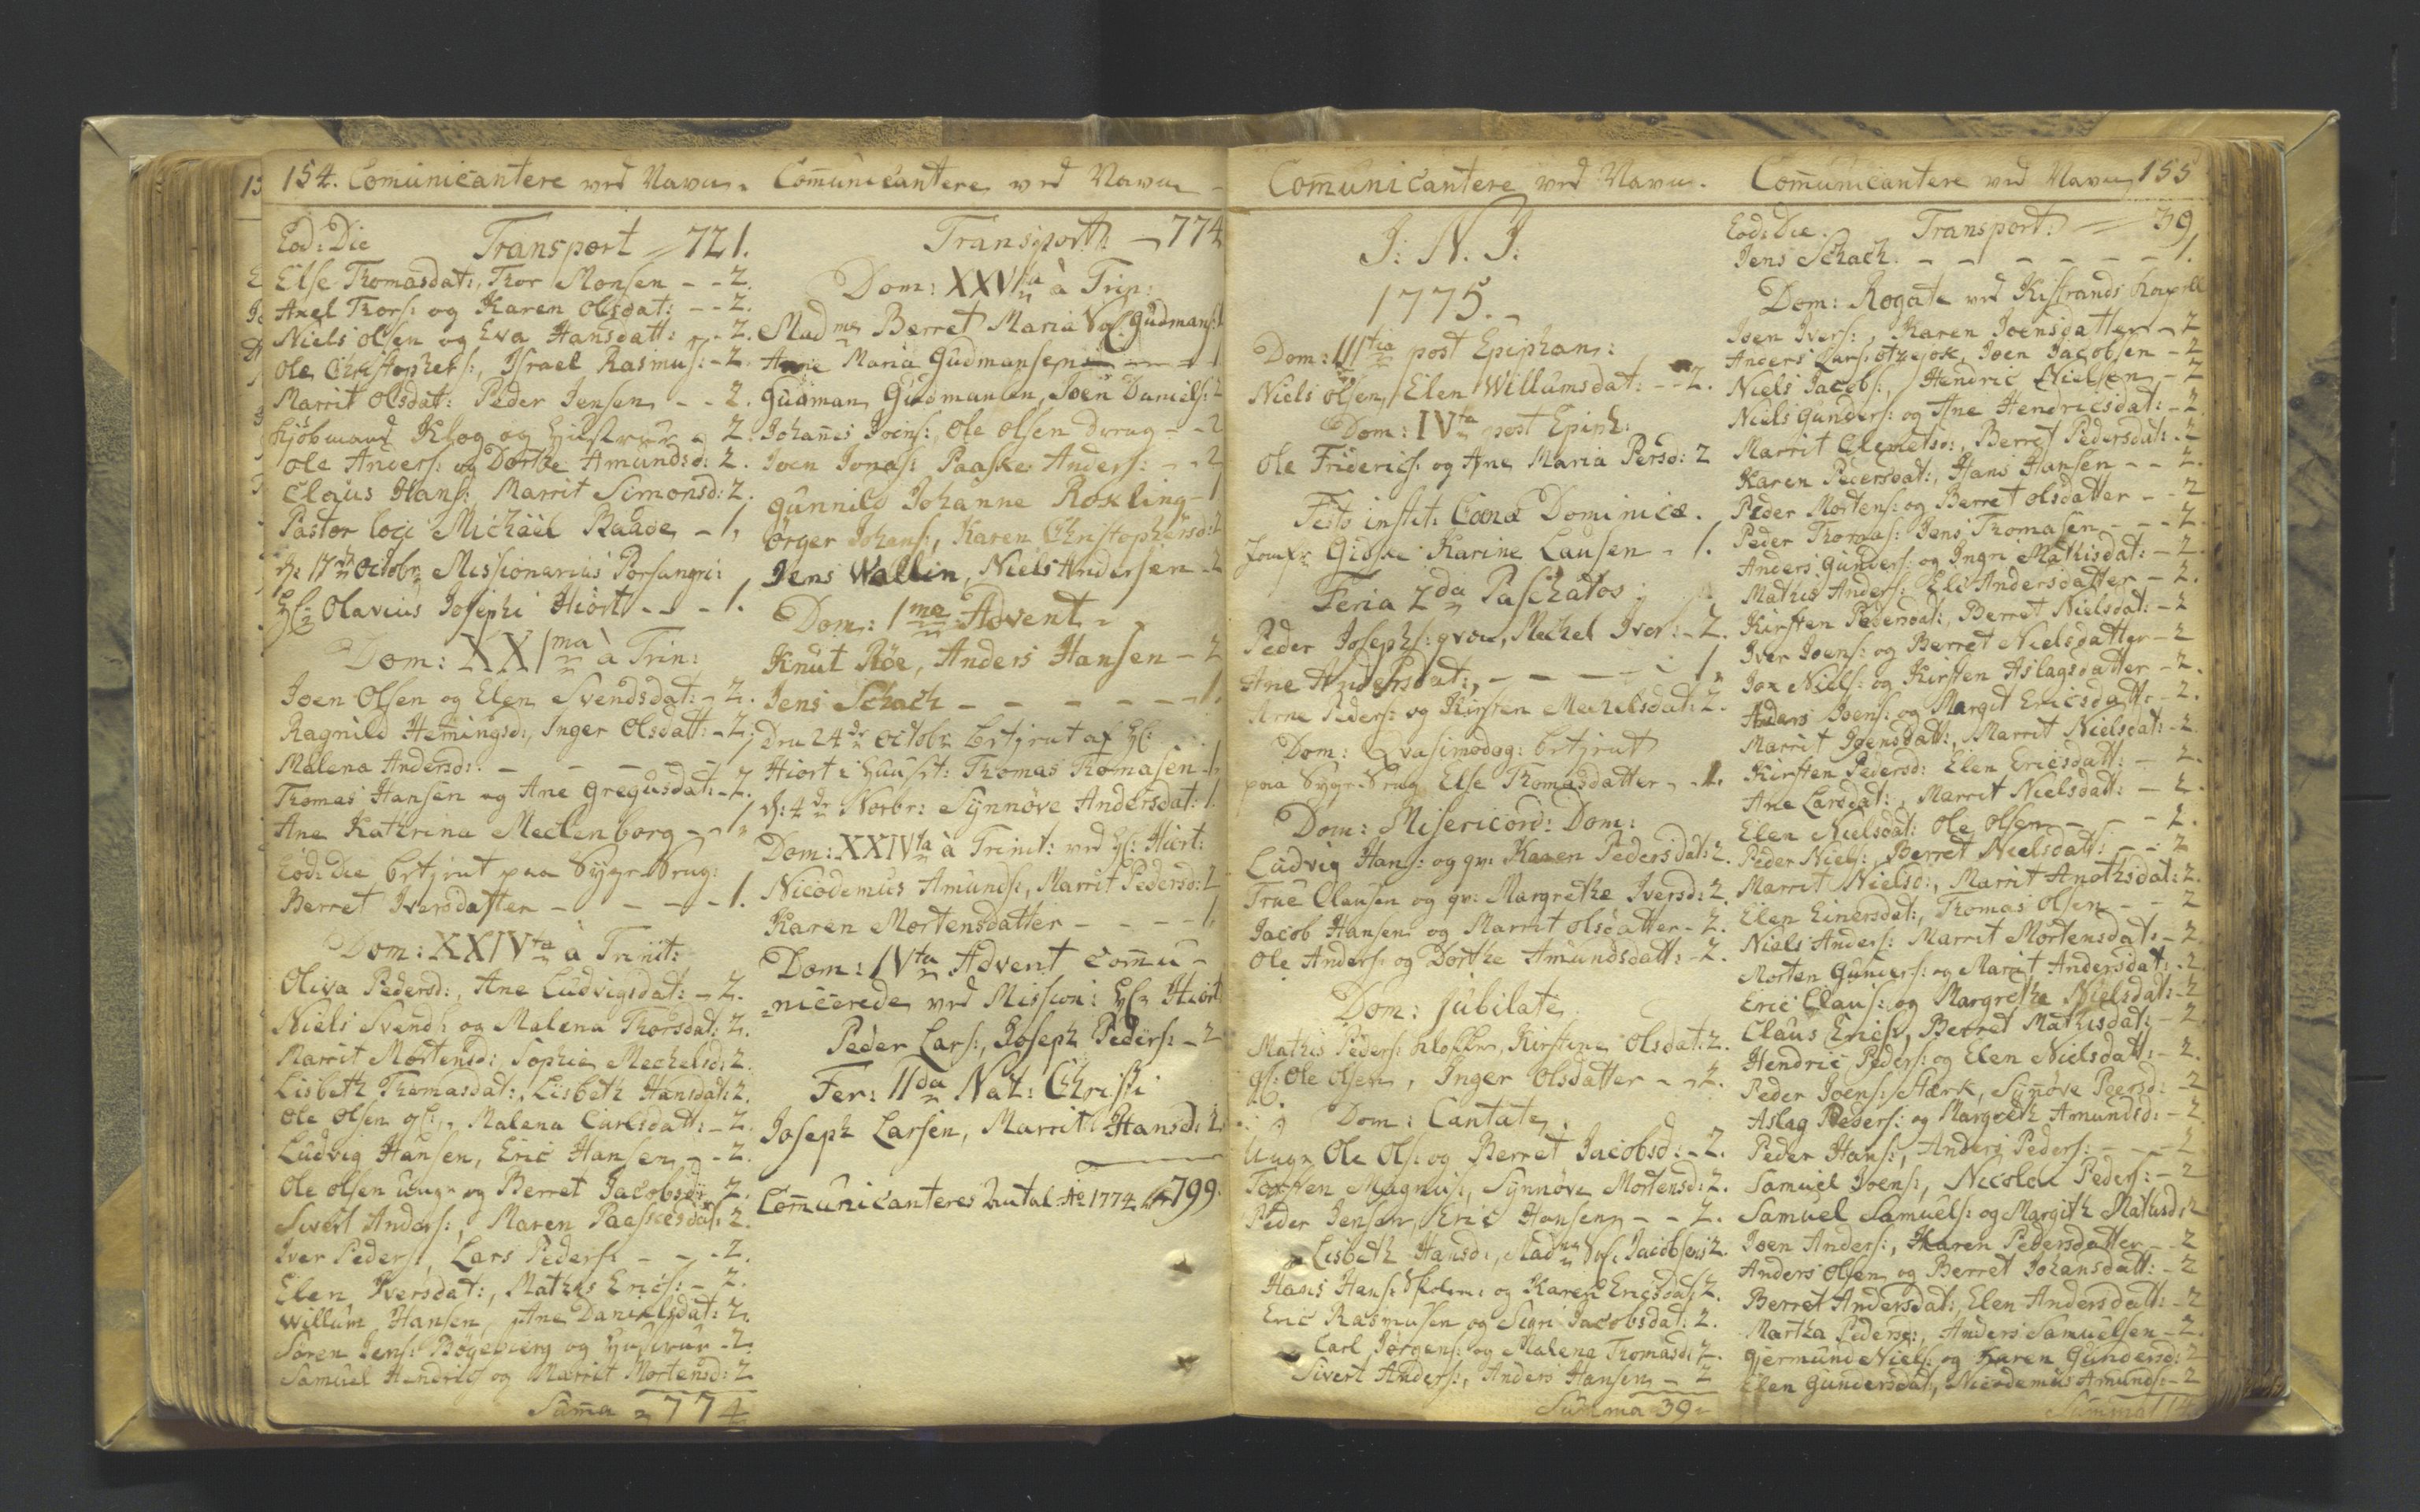 154. Comunicantere ved Navn.
Eod: Die Transport 721.
Else Thomasdat:, Thor Monsen - - 2.
Axel Thors: og Karen Olsdat: - - 2.
Niels Olsen og Eva Hansdatt: - 2.
Ole Christophers:, Israel Rasmus: - 2.
Marrit Olsdat: Peder Jensen - - 2.
Kjöbmand Klog og Hustrue - 2.
Ole Anders: og Dorthe Amundsd: 2.
Claus Hans:, Marrit Simonsd: 2.
Pastor loci Michäel - 1.
d: 17de Octobr Missionarius Porsangri:
Hr: Olavius Josephi Hiort - - - 1.
Dom: XXIma à Trin:
Joen Olsen og Elen Svendsdat: - 2.
Ragnild Hemingsd:, Inger Olsdatt: - 2.
Malena Andersd: - - - - - 1.
Thomas Hansen og Ane Gregusdat: - 2.
Ane Kathrina Meclenborg - - 1.
Eod: Die betjent paa Syge-Seng:
Berret Iversdatter - - - - 1.
Dom: XXIVta à Trinit:
Oliva Pedersd:, Ane Ludvigsdat: - 2.
Niels Svends: og Malena Thorsdat: 2.
Marrit Mortensd: Sophie Mechelsd: 2.
Lisbeth Thomasdat:, Lisbeth Hansdat: 2.
Ole Olsen gl:, Malena Carlsdatt: - 2.
Ludvig Hansen, Eric Hansen - - 2.
Ole Olsen unge og Berret Jacobsd: 2.
Sivert Anders:, Maren Paaskesdat: 2.
Iver Peders:, Lars Peders: - - - 2.
Elen Iversdat:, Mathis Erics: - 2.
Willum Hansen, Ane Danielsdat: 2.
Sören Jens: Bögebierg og Hustrue - 2.
Samuel Hendrics og Marrit Mortensd: 2
Sum̄a 774
Com̄unicantere ved Navn
Transporth: 774
Dom: XXVta à Trin:
Madme Berret Maria Gudmans: 1
Anne Maria Gudmansen - - 1
Gudman Gudmansen, Joen Daniels: 2
Johan̄es Joens:, Ole Olsen dreng - - 2
Joen Jonas: Paaske Anders: - - 2
Gunnild Johanne Roxling - 1
Örger Johans:, Karen Christophersd: 2
Jens Wallin, Niels Andersen - 2
Dom: 1ma Advent
Knut Röe, Anders Hansen - 2
Jens Schach - - - - - - 1.
Den 24de Octobr betjent af Hr:
Hiort i Thomas Thomasen - 1.
d: 4de Novbr: Synnöve Andersdat: 1.
Dom: XXIVta à Trinit: ved Hr: Hiort:
Nicodemus Amunds:, Marrit Pedersd: 2
Karen Mortensdatter - - - - 1.
Dom: IVta Advent com̄u-
nicerede ved Mission: Hr Hiort
Peder Lars:, Joseph Peders: - 2
Fer: IIda Nat: Christi
Joseph Larsen, Marrit Hansd: 2
Com̄unicanteres Antal Ao 1774 er 799.
Com̄unicantere ved Navn.
J: N. J:
1775.
Dom: IIItia post Epiphan:
Niels Olsen, Elen Willumsdat: - - 2.
Dom: IVta post Epiph:
Ole Friderics: og Ane Maria Persd: 2
Festo instit: Cœnæ Dominicæ.
Jomfr Gidske Karine Lausen - 1.
Feria 2da Paschatos
Peder Josephs: gvou, Mechel Iver: - 2.
Ane Andersdat:, - - - - - 1.
Arne Peders: og Kirsten Mechelsdat: 2.
Dom: Qvasimodog: betjent
paa Syge-Seng Else Thomasdatter - 1.
Dom: Misericord: Dom:
Ludvig Hans: og qv: Karen Pedersdat: 2.
True Clausen og qv: Margrethe Iversd: 2.
Jacob Hansen og Marrit Olsdatter - 2.
Ole Anders: og Dorthe Amundsdatt: - 2.
Dom: Jubilate
Mathis Peders: Kirstine Olsdat: 2.
gl: Ole Olsen, Inger Olsdatter - - 2.
Dom: Cantate.
Unge Ole Ols: og Berret Jacobsd: - 2.
Torsten Magnus:, Synnöve Mortensd: 2.
Peder Jensen, Eric Hansen - - 2.
Lisbeth Hansd:, Madme Jacobsens 2.
Hans Hans: Skolem: og Karen Ericsdat 2.
Eric Rasmusen og Sigri Jacobsdat: 2.
Carl Jörgens: og Malena Thomasd: 2.
Sivert Anders:, Anders Hansen - 2
Summa 39
Com̄unicantere ved Navn 155
Eod: Die. Transport: 39
Jens Schach. - - - - - - 1.
Dom: Rogate ved Kistrands Kapell
Joen Ivers:, Karen Joensdatter - 2
Anders Lars: Otzejok, Joen Jacobsen - 2
Niels Jacobs:, Hendric Nielsen - 2
Niels Gunders: og Ane Hendricsdat: - 2
Marrit Clemetsd:, Berret Pedersdat: - 2
Karen Pedersdat:, Hans Hansen - - 2.
Peder Mortens: og Berret Olsdatter - - 2
Peder Thomas: Jens Thomasen - - - 2.
Anders Gunders: og Ingri Mathisdat: - 2.
Mathis Anders: Eli Andersdatter - 2.
Kirsten Pedersdat:, Berret Nielsdat: - 2
Iver Joens: og Berret Nielsdatter - 2
Jox Niels: og Kirsten Aslagsdatter - 2.
Anders Joens: og Margit Ericsdatt: - 2.
Marrit Joensdatt:, Marrit Nielsdat: - 2.
Kirsten Pedersd: Elen Ericsdatt: - 2.
Ane Larsdat:, Marrit Nielsdatt: - 2.
Elen Nielsdat: Ole Olsen - - - 2.
Peder Niels:, Berret Nielsdatt: - - 2
Marrit Nielsd:, Marrit Anothsdat: 2.
Elen Einersdat:, Thomas Olsen - - 2
Niels Anders: Marrit Mortensdat: - 2.
Morten Gunders: og Marrit Andersdat: - 2
Eric Claus: og Margrethe Nielsdat: - 2
Claus Erics:, Berret Mathisdat: - 2
Hendric Peders: og Elen Nielsdatt: - 2.
Peder Joens: Stærk, Syn̄öve Peersd: - 2
Aslag Peders: og Margreth Amundsd: - 2
Peder Hans:, Anders Peders: - - - 2
Samuel Joens:, Nicolai Peders: - 2
Samuel Samuels: og Margith Mathisd: 2
Joen Anders:, Karen Pedersdatter - - 2
Anders Olsen og Berret Johansdatt: - 2
Berret Andersdat:, Elen Andersdatt: - 2
Martha Pedersd:, Anders Samuelsen - 2.
Gjermund Niels: og Karen Gundersd: 2
Elen Gundersdat:, Nicodemus Amunds: - 2
Summa 114